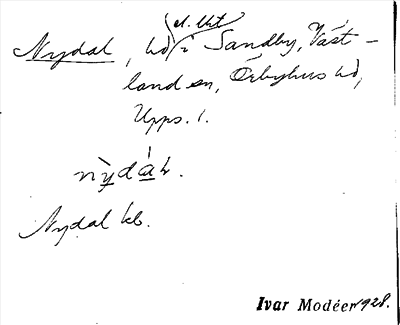 el. lht
Nydal, hd i Sandby, Väst-
land sn, Örbyhus hd,
Upps. l.
nỳdáɫ.
Nydal kb.
Ivar Modéer 1928.